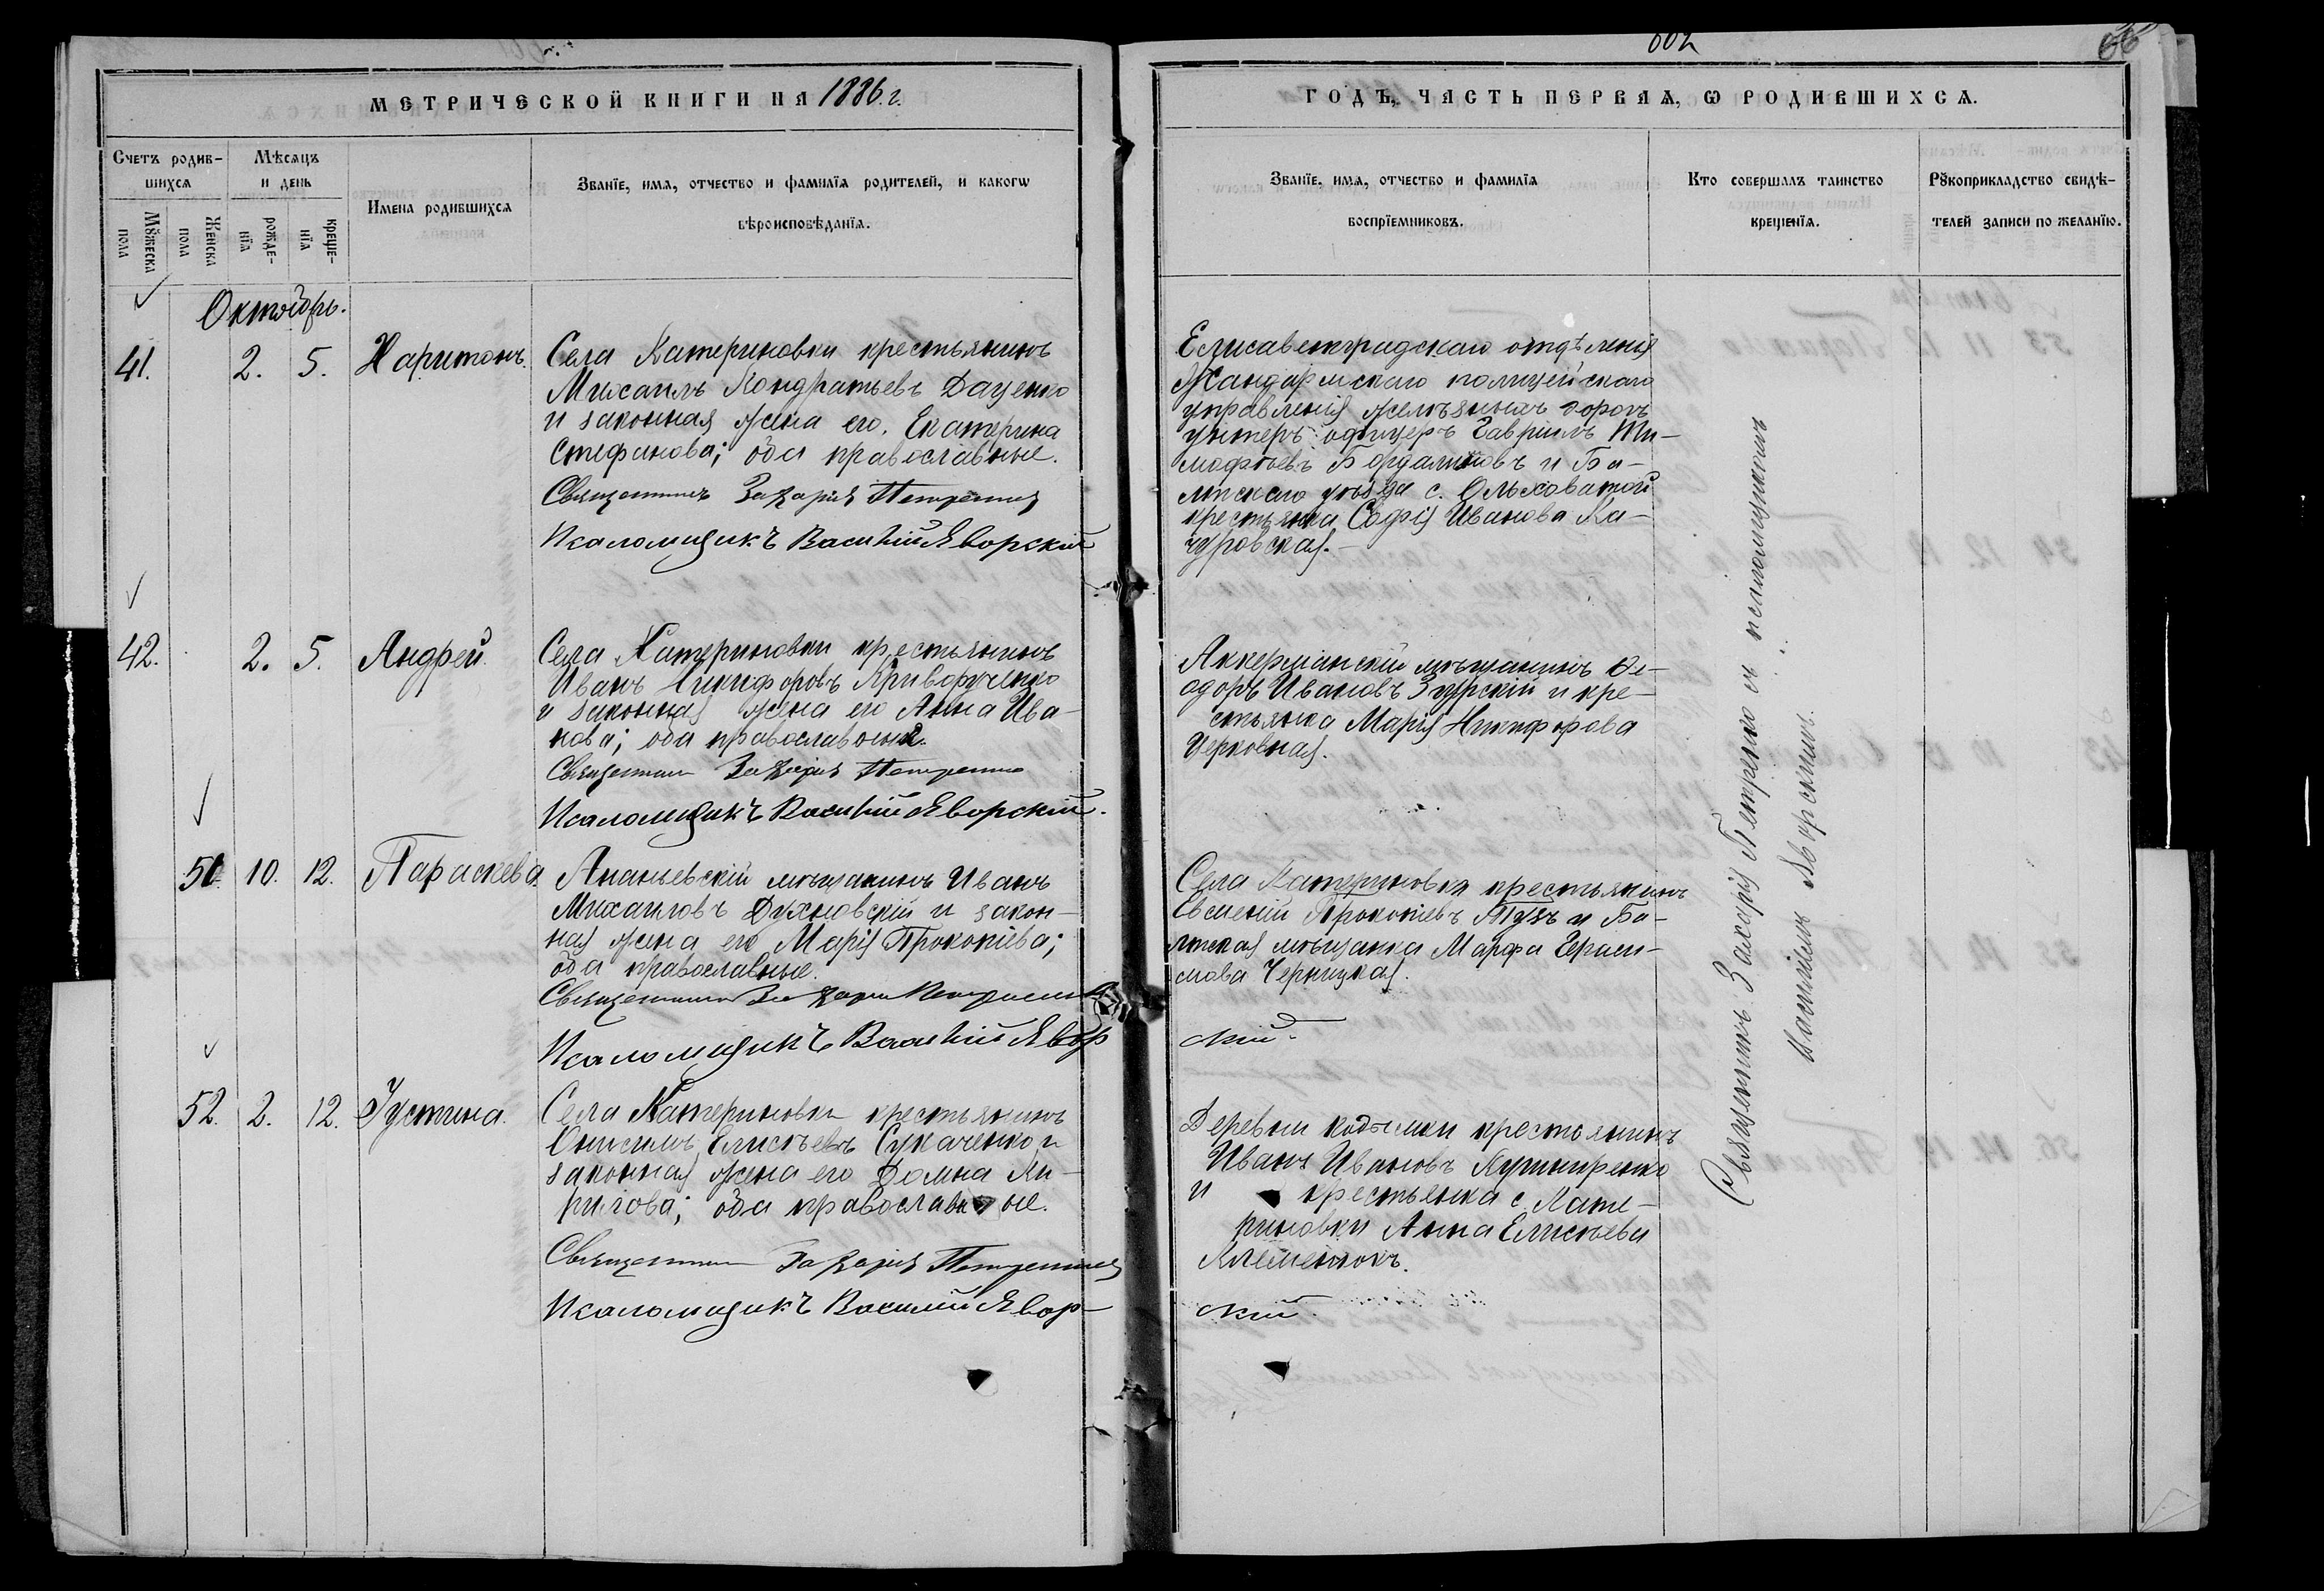 602
66
МЕТРИЧЕСКОЙ КНИГИ НА 1886 г.
ГОДЪ, ЧАСТЬ ПЕРВАѦ, Ѡ РОДИВШИХСѦ.
Счетъ родив-
шихсѧ
Мѣсѧцъ
и день
Мꙋжеска
пола
Женска
пола
рожде-
нїѧ
креще-
нїѧ
Имена родившихсѧ
Званїе, имѧ, отчество и фамилїѧ родителей, и какогѡ
вѣроисповѣданїѧ.
Званїе, имѧ, отчество и фамилїѧ
воспрїемниковъ.
Кто совершалъ таинство
крещенїѧ.
Рꙋкоприкладство свидѣ-
телей записи по желанїю.
Октябрь.
41. 2. 5. Харитонъ.
Села Катериновки крестьянинъ
Михаилъ Кондратьевъ Даценко
и законная жена его, Екатерина
Стефанова; оба православные.
Священникъ Захарія Петренко
Псаломщикъ Василій Яворскій
Елисаветградскаго отдѣленія
Жандармскаго полицейскаго
управленія желѣзныхъ дорогъ
унтеръ офицеръ Гавріилъ Ти-
мофѣевъ и Ба-
лтскаго уѣзда с. Ольховатой
крестьянка Софія Иванова Ка-
чуровская.
42. 2. 5. Андрей.
Села Катериновки крестьянинъ
Иванъ Никифоровъ Криворученко
и законная жена его Анна Ива-
нова; оба православные.
Священникъ Захарія Петренко
Псаломщикъ Василій Яворскій.
Аккерманскій мѣщанинъ Ѳе-
одоръ Ивановъ и кре-
стьянка Марія Никифорова
Церковная.
51. 10. 12. Параскева.
Ананьевскій мѣщанинъ Иванъ
Михаиловъ Духновскій и закон-
ная жена его Марія Прокопіева;
оба православные.
Священникъ Захарія Петренко
Псаломщикъ Василій Явор
скій.
Села Катериновки крестьянинъ
Евменій Прокопіевъ и Ба-
лтская мѣщанка Марфа Гераси-
мова Черницкая.
52. 2. 12. Іустина.
Села Катериновки крестьянинъ
Онисимъ Елисѣевъ Сукаченко и
законная жена его Домна Ки-
рилова; оба православные.
Священникъ Захарія Петренко
Псаломщикъ Василій Явор-
скій.
Деревни Кодымки крестьянинъ
Иванъ Ивановъ Кушниренко
и крестьянка с. Кате-
риновки Анна Елисѣева
Клеменюкъ.
Священникъ Захарія Петренко съ псаломщикомъ
Василіемъ Яворскимъ.